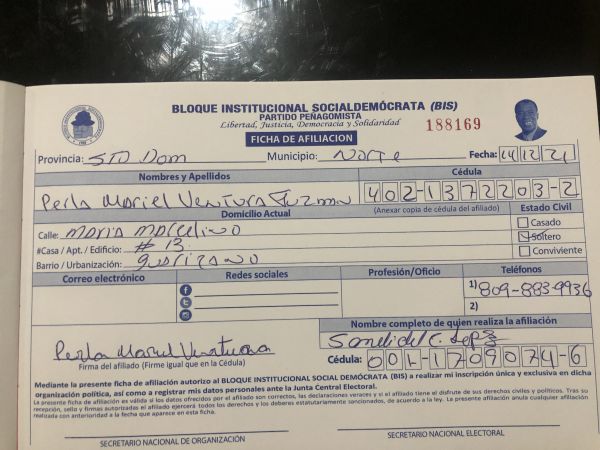 BLOQUE INSTITUCIONAL SOCIALDEMÓCRATA (BIS)
PARTIDO PEÑAGOMISTA
Libertad, Justicia, Democracia y Solidaridad
188169
FICHA DE AFILIACION
Provincia: STO Dom Municipio: Norte Fecha: 14/12/21
Nombres y Apellidos Cédula
Perla Mariel Ventura Guzman 402-1372203-2
Domicilio Actual (Anexar copia de cédula del afiliado) Estado Civil
Calle: Maria Marcelino Casado
#Casa / Apt. / Edificio: # 13 Soltero
Barrio / Urbanización: Conviviente
Correo electrónico Redes sociales Profesión/Oficio Teléfonos
1) 809-883-9936
2)
Nombre completo de quien realiza la afiliación
Perla Mariel Ventura
Firma del afiliado (Firme igual que en la Cédula) Cédula: 001-1709074-6
Mediante la presente ficha de afiliación autorizo al BLOQUE INSTITUCIONAL SOCIAL DEMÓCRATA (BIS) a realizar mi inscripción única y exclusiva en dicha
organización política, así como a registrar mis datos personales ante la Junta Central Electoral.
La presente ficha de afiliación es válida a los datos ofrecidos por el afiliado son correctos, las declaraciones veraces y si el afiliado tiene el disfrute de sus derechos civiles y políticos. Tras su
recepción, sello y firmas autorizadas el afiliado ejercerá todos los derechos y los deberes estatutariamente sancionados, de acuerdo a la ley. La presente afiliación anula cualquier afiliación
realizada con anterioridad a la fecha que aparece en esta ficha.
SECRETARIO NACIONAL DE ORGANIZACIÓN SECRETARIO NACIONAL ELECTORAL